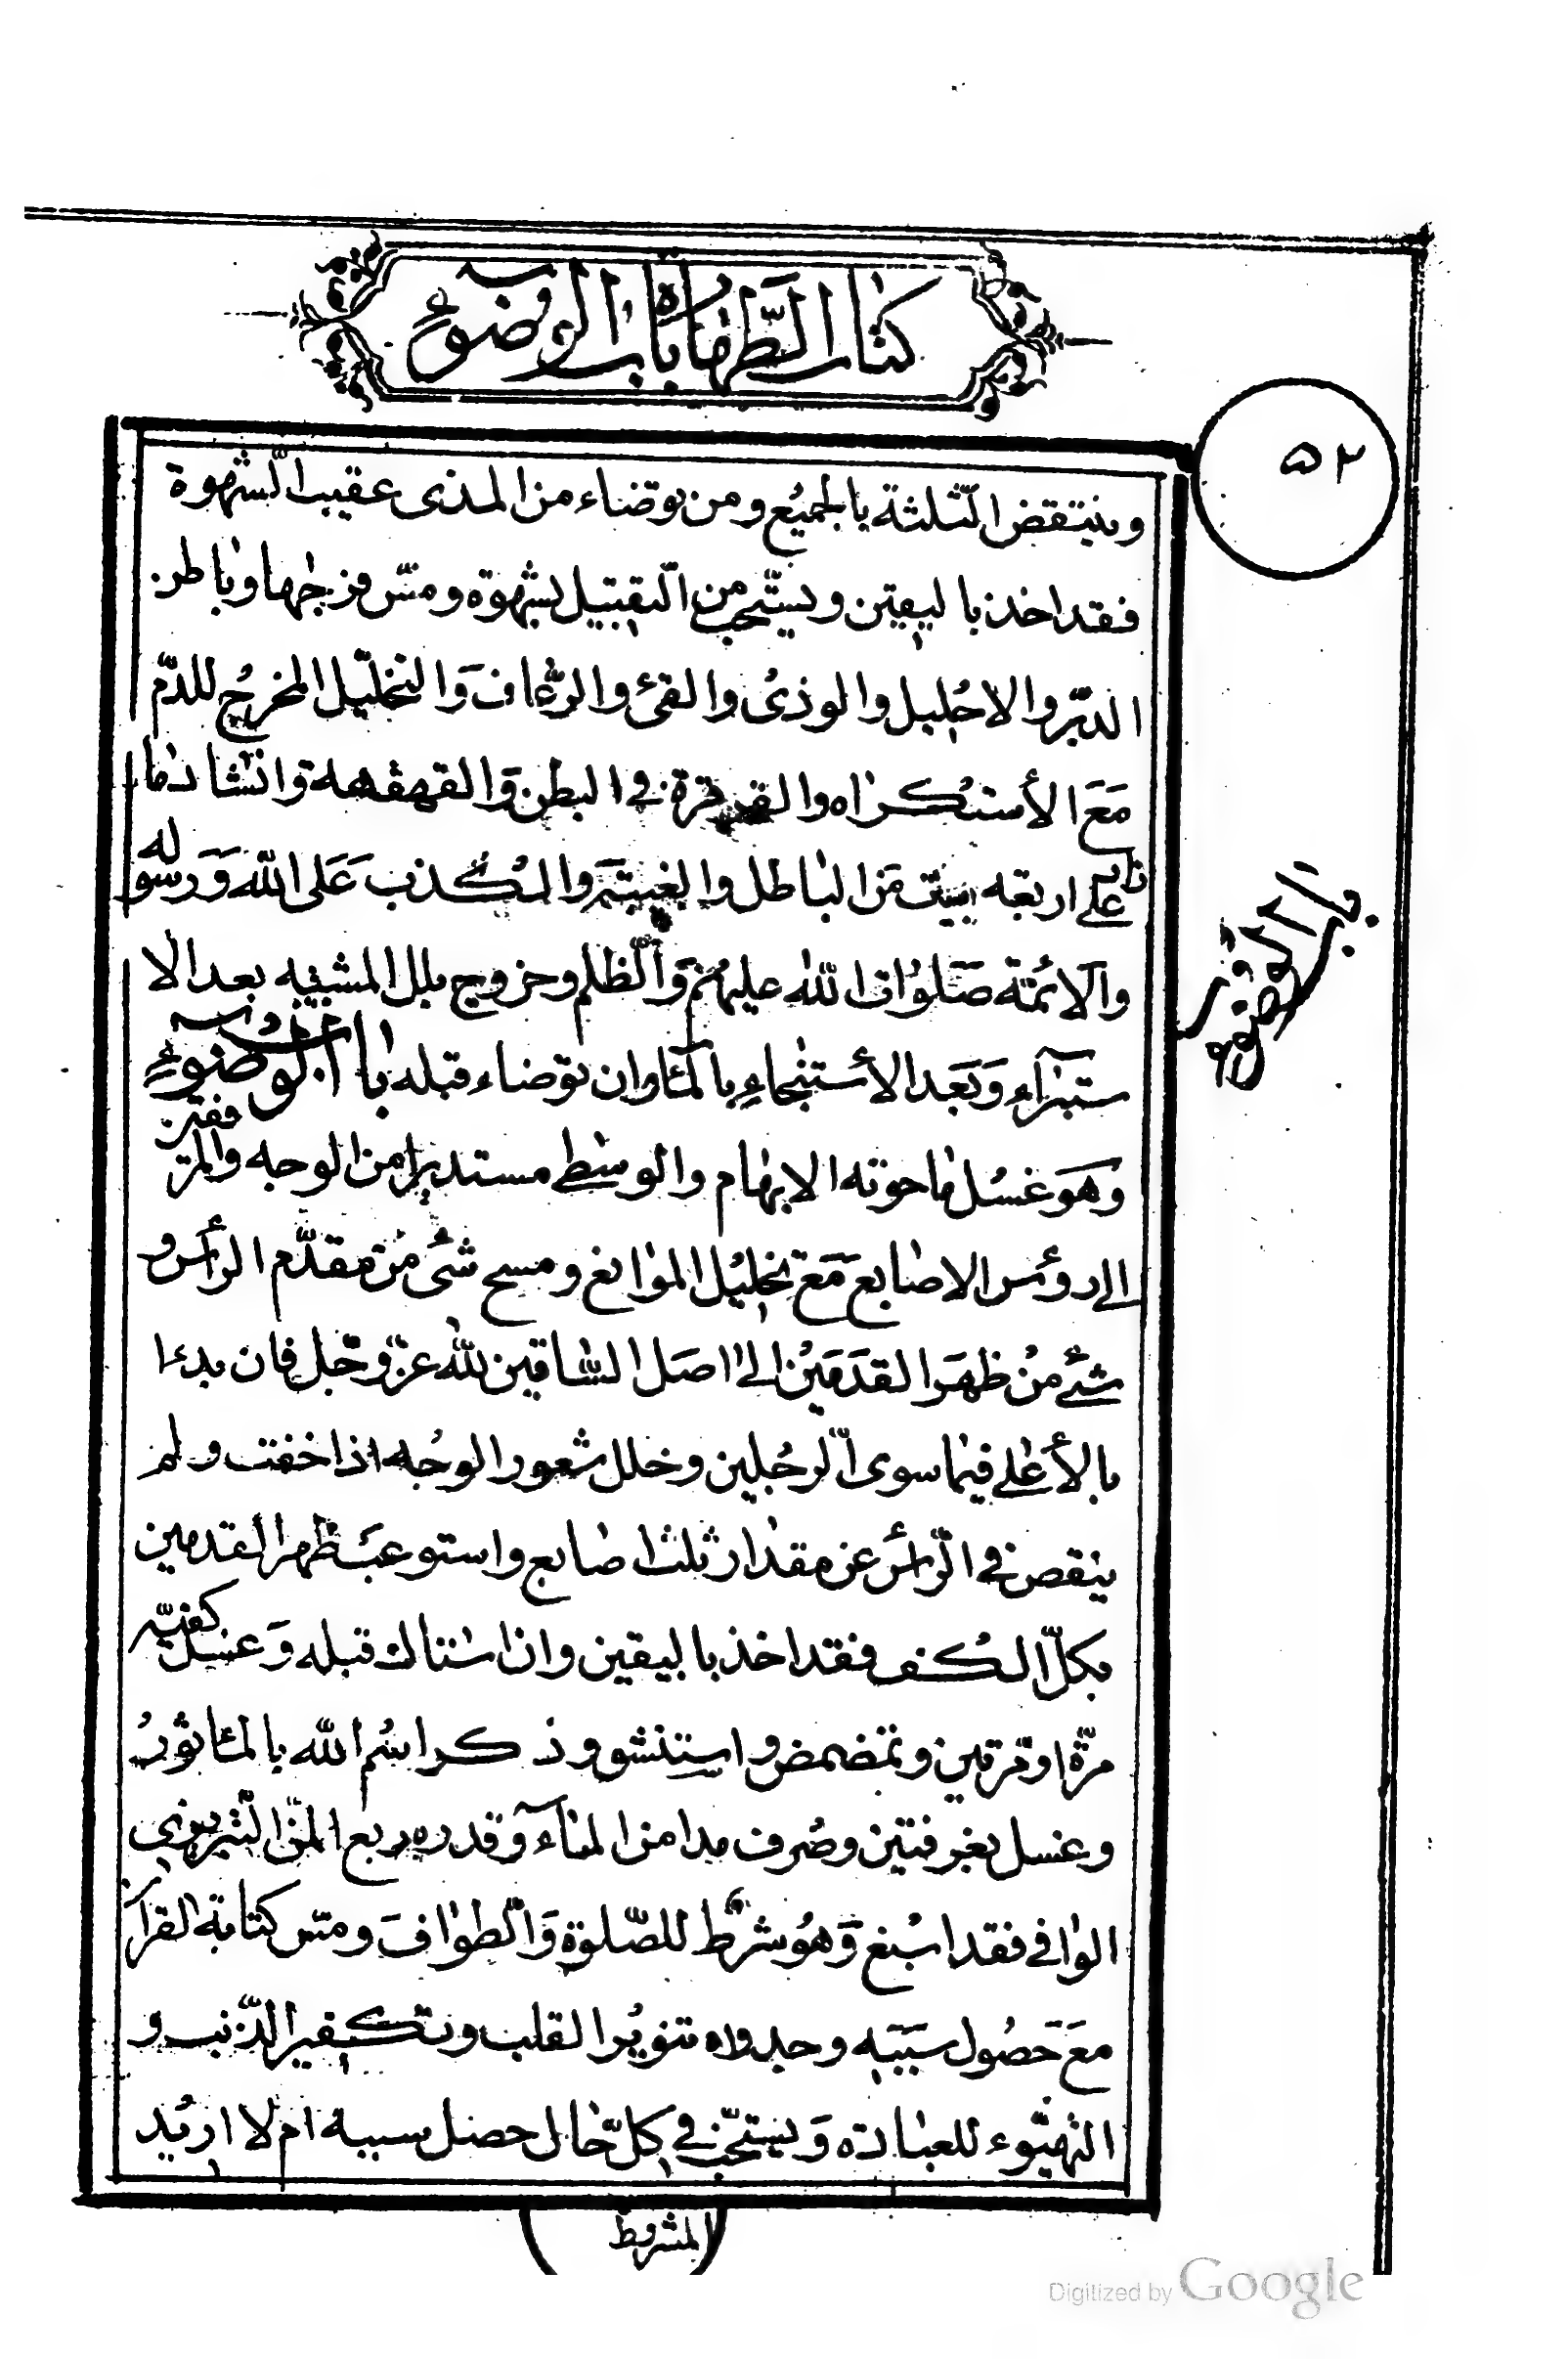 كتاب الطهارة باب الوضوء
٥٢
وينتقض الثلثة بالجميع ومن توضاء من المذى عقيب الشهوة
فقد اخذ باليقين ويستحب من التقبيل بشهوة ومس فرجها وباطن
الدبر والاحليل والوذى والقئ والرعاف والتخليل المخرج للدم
مع الأستكراه والقرقرة في البطن والقهقهة وانشاد ما
زاد على اربعة ابيات من الباطل والغيبة والكذب على الله ورسوله
والائمة صلوات الله عليهم والظلم وخروج بلل المشتبه بعد الا
ستبراء وبعد الأستنجاء بالماء وان توضاء قبله باب الوضوء
وهو غسل ما حوته الابهام والوسطى مستديرا من الوجه والمرفقين
الى رؤس الاصابع مع تخليل الموانع ومسح شئ من مقدم الرأس و
شئ من ظهر القدمين الى اصل الساقين لله عز وجل فان بدءا
بالأعلى فيما سوى الرجلين وخلل شعور الوجه اذا خفت ولم
ينقص في الرأس عن مقدار ثلث اصابع واستوعب ظهر القدمين
بكل الكف فقد اخذ باليقين واذا استاك قبله وغسل كفيه
مرة او مرتين وتمضمض واستنشق وذكر اسم الله بالمأثور
وغسل بغرفتين وصرف مدا من الماء وقدره ربع المن التبريزي
الوافي فقد اسبغ وهو شرط للصلوة والطواف ومس كتابة القرآن
مع حصول سببه وجدواه تنوير القلب وتكفير الذنب و
التهيؤ للعبادة ويستحب في كل حال حصل سببه ام لا اريد
باب الوضوء
(المشروط)
Digitized by Google